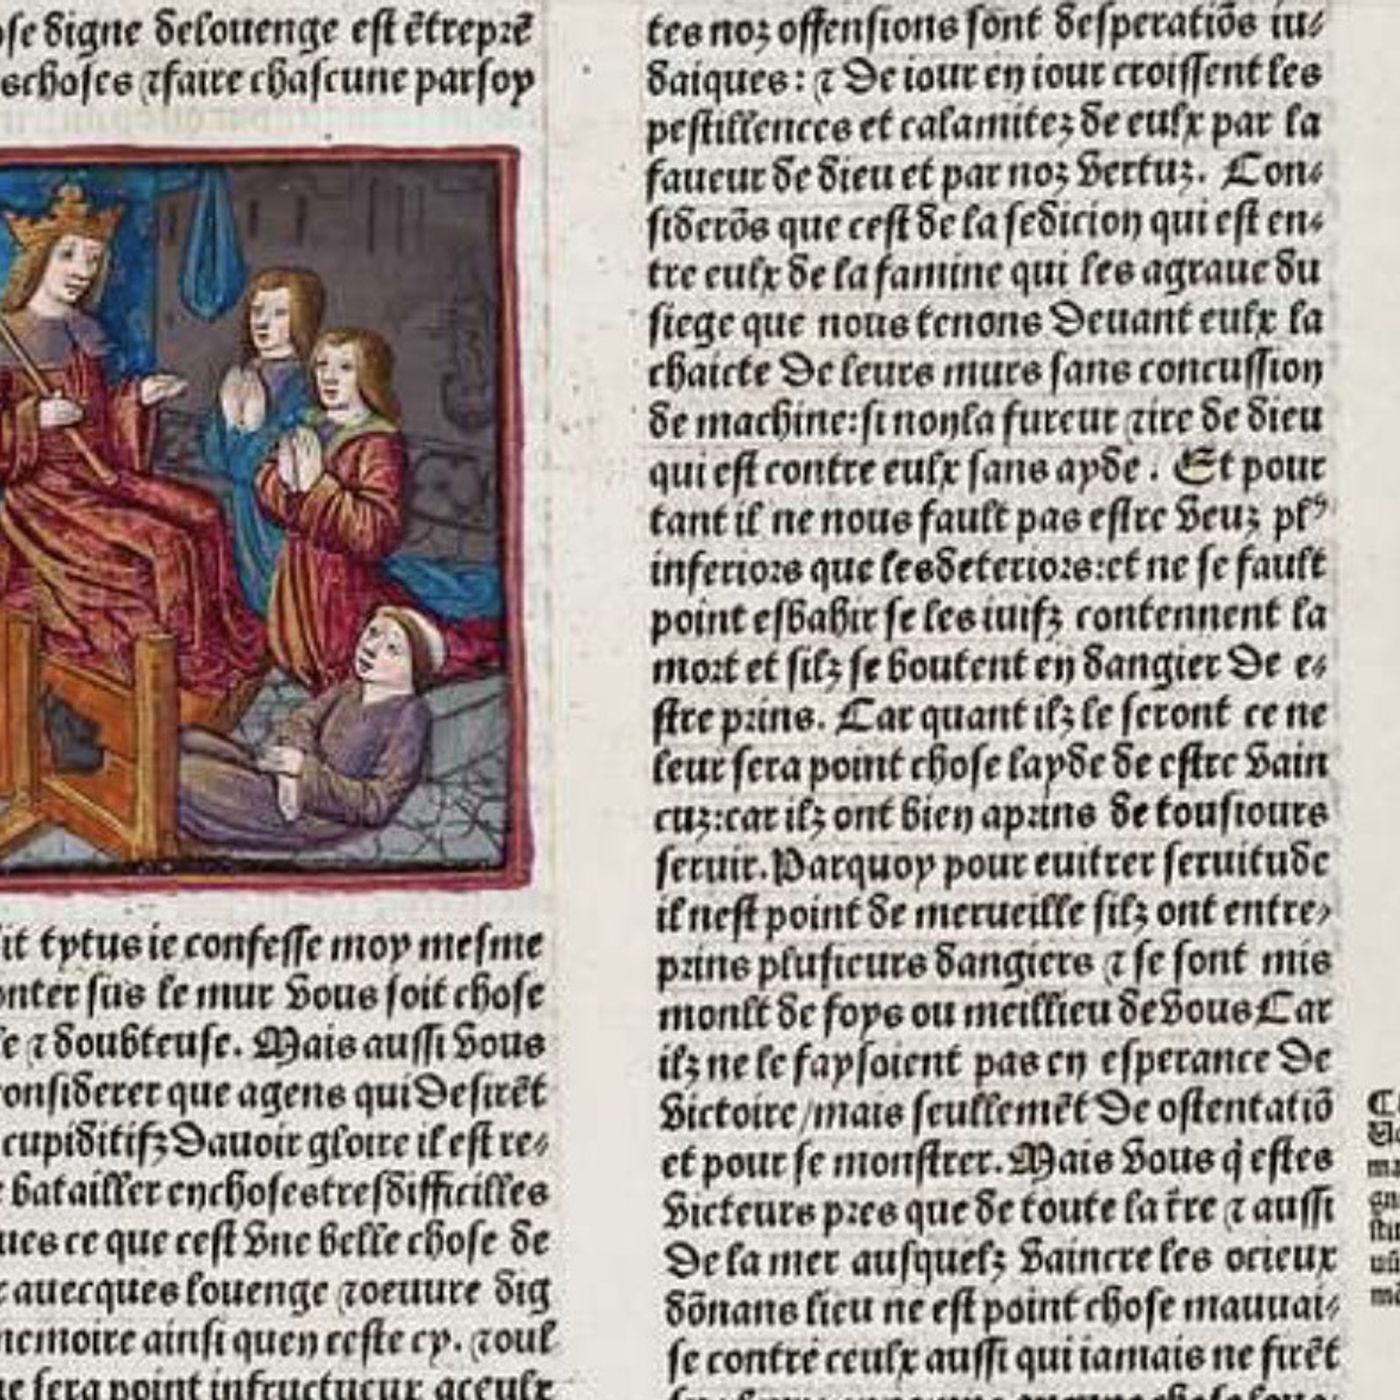 ose digne delouenge est ētreprē
schoses ⁊faire chascune parsoy
it tytus ie confesse moy mesme
onter sus le mur vous soit chose
e ⁊ doubteuse. Mais aussi vous
onsiderer que agens qui desirēt
cupiditifz dauoir gloire il est re⸗
batailler enchosestresdifficilles
ues ce que cest vne belle chose de
auecques louenge ⁊oeuure dig
memoire ainsi quen ceste cy. ⁊oul
ne sera point infructueux aceulx
tes noz offensions sont desperatiōs iu⸗
daiques: ⁊ De iour en iour croissent les
pestillences et calamitez de eulx par la
faueur de dieu et par noz vertuz. Con⸗
siderōs que cest de la sedicion qui est en⸗
tre eulx de la famine qui les agraue du
siege que nous tenons Deuant eulx la
chaicte De leurs murs sans concussion
de machine:si nonla fureur ⁊ire de dieu
qui est contre eulx sans ayde. Et pour
tant il ne nous fault pas estre veuz plꝰ
inferiors que lesdeteriors:et ne se fault
point esbahir se les iuifz contennent la
mort et silz se boutent en dangier De e⸗
stre prins. Car quant ilz le seront ce ne
leur sera point chose layde de estre vain
cuz:car ilz ont bien aprins de tousiours
seruir. Parquoy pour euitrer seruitude
il nest point de merueille silz ont entre⸗
prins plusieurs dangiers ⁊ se sont mis
monlt de foys ou meillieu de vous Car
ilz ne le faysoient pas en esperance De
victoire/mais seullemēt De ostentatiō
et pour se monstrer. Mais vous q̇ estes
victeurs pres que de toute la t̄re ⁊ aussi
De la mer ausquelz vaincre les ocieux
dōnans lieu ne est point chose mauuai⸗
se contre ceulx aussi qui iamais ne firēt